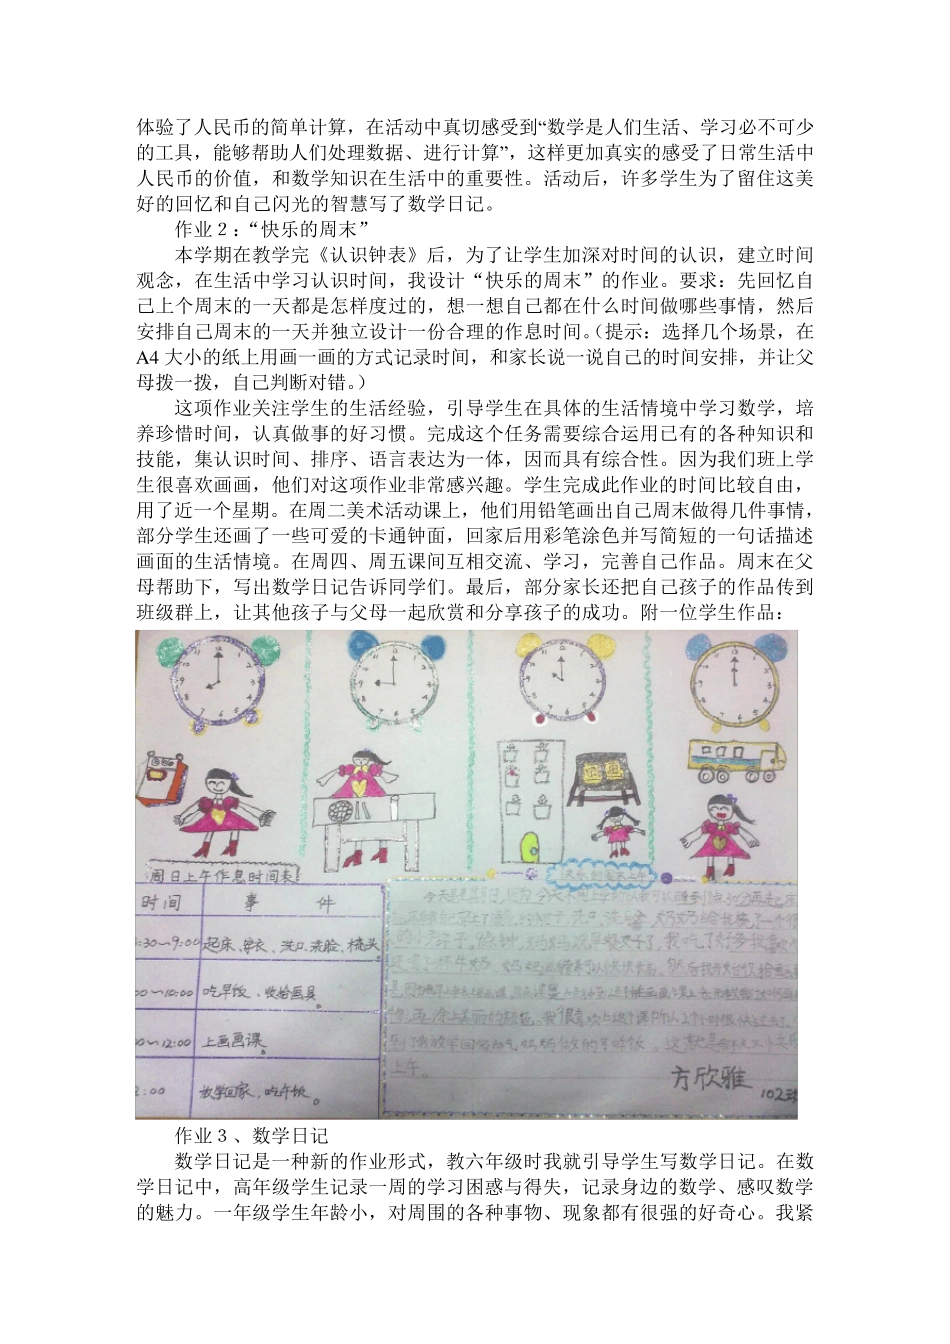 体验了人民币的简单计算，在活动中真切感受到“数学是人们生活、学习必不可少
的工具，能够帮助人们处理数据、进行计算”，这样更加真实的感受了日常生活中
人民币的价值，和数学知识在生活中的重要性。活动后，许多学生为了留住这美
好的回忆和自己闪光的智慧写了数学日记。
作业２：“快乐的周末”
本学期在教学完《认识钟表》后，为了让学生加深对时间的认识，建立时间
观念，在生活中学习认识时间，我设计“快乐的周末”的作业。要求：先回忆自
己上个周末的一天都是怎样度过的，想一想自己都在什么时间做哪些事情，然后
安排自己周末的一天并独立设计一份合理的作息时间。（提示：选择几个场景，在
A4 大小的纸上用画一画的方式记录时间，和家长说一说自己的时间安排，并让父
母拨一拨，自己判断对错。）
这项作业关注学生的生活经验，引导学生在具体的生活情境中学习数学，培
养珍惜时间，认真做事的好习惯。完成这个任务需要综合运用已有的各种知识和
技能，集认识时间、排序、语言表达为一体，因而具有综合性。因为我们班上学
生很喜欢画画，他们对这项作业非常感兴趣。学生完成此作业的时间比较自由，
用了近一个星期。在周二美术活动课上，他们用铅笔画出自己周末做得几件事情，
部分学生还画了一些可爱的卡通钟面，回家后用彩笔涂色并写简短的一句话描述
画面的生活情境。在周四、周五课间互相交流、学习，完善自己作品。周末在父
母帮助下，写出数学日记告诉同学们。最后，部分家长还把自己孩子的作品传到
班级群上，让其他孩子与父母一起欣赏和分享孩子的成功。附一位学生作品：
周日上午作息时间表
时间 事 件
:30～9:00 起床、穿衣、洗口、洗脸、梳头
00～10:00 吃早饭、收拾画具。
00～12:00 上画画课。
2:00 放学回家、吃午饭。
方欣雅
作业３、数学日记
数学日记是一种新的作业形式，教六年级时我就引导学生写数学日记。在数
学日记中，高年级学生记录一周的学习困惑与得失，记录身边的数学、感叹数学
的魅力。一年级学生年龄小，对周围的各种事物、现象都有很强的好奇心。我紧